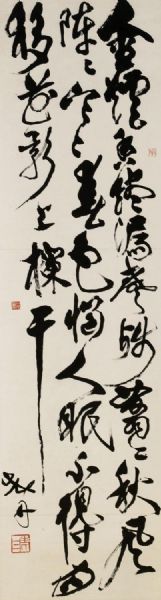 金爐香燼漏聲殘翦〻秋風
陣〻寒春色惱人眠不得月
移花影上欄干